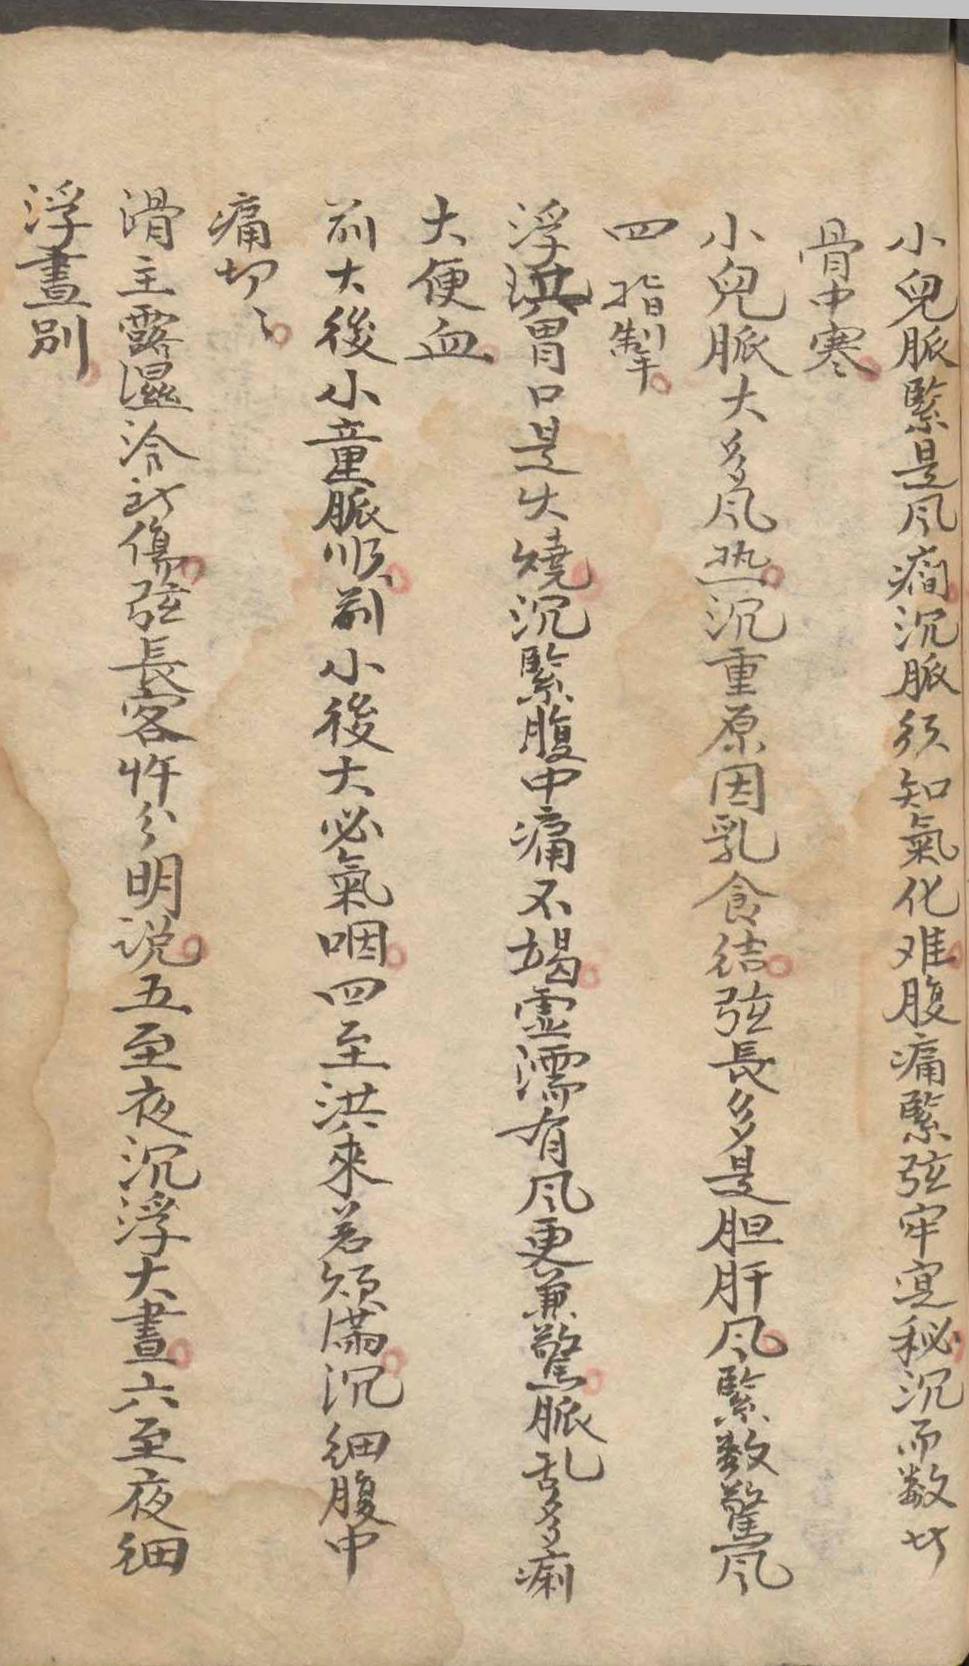 小兒脈緊是风癎沉脈须知氣化难腹痛緊弦牢寔秘沉而数者
骨中寒
小兒脈大多风热沉重原因乳食结弦長多是胆肝风緊数驚风
四指掣
浮洪胃口是火燒沉緊腹中痛不竭虛濡有风更兼驚脈乱多痢
大便血
前大後小童脈顺前小後大必氣咽四至洪來若烦满沉细腹中
痛切〻
滑主露濕冷所傷弦長客忤分明说五至夜沉浮大晝六至夜细
浮晝别